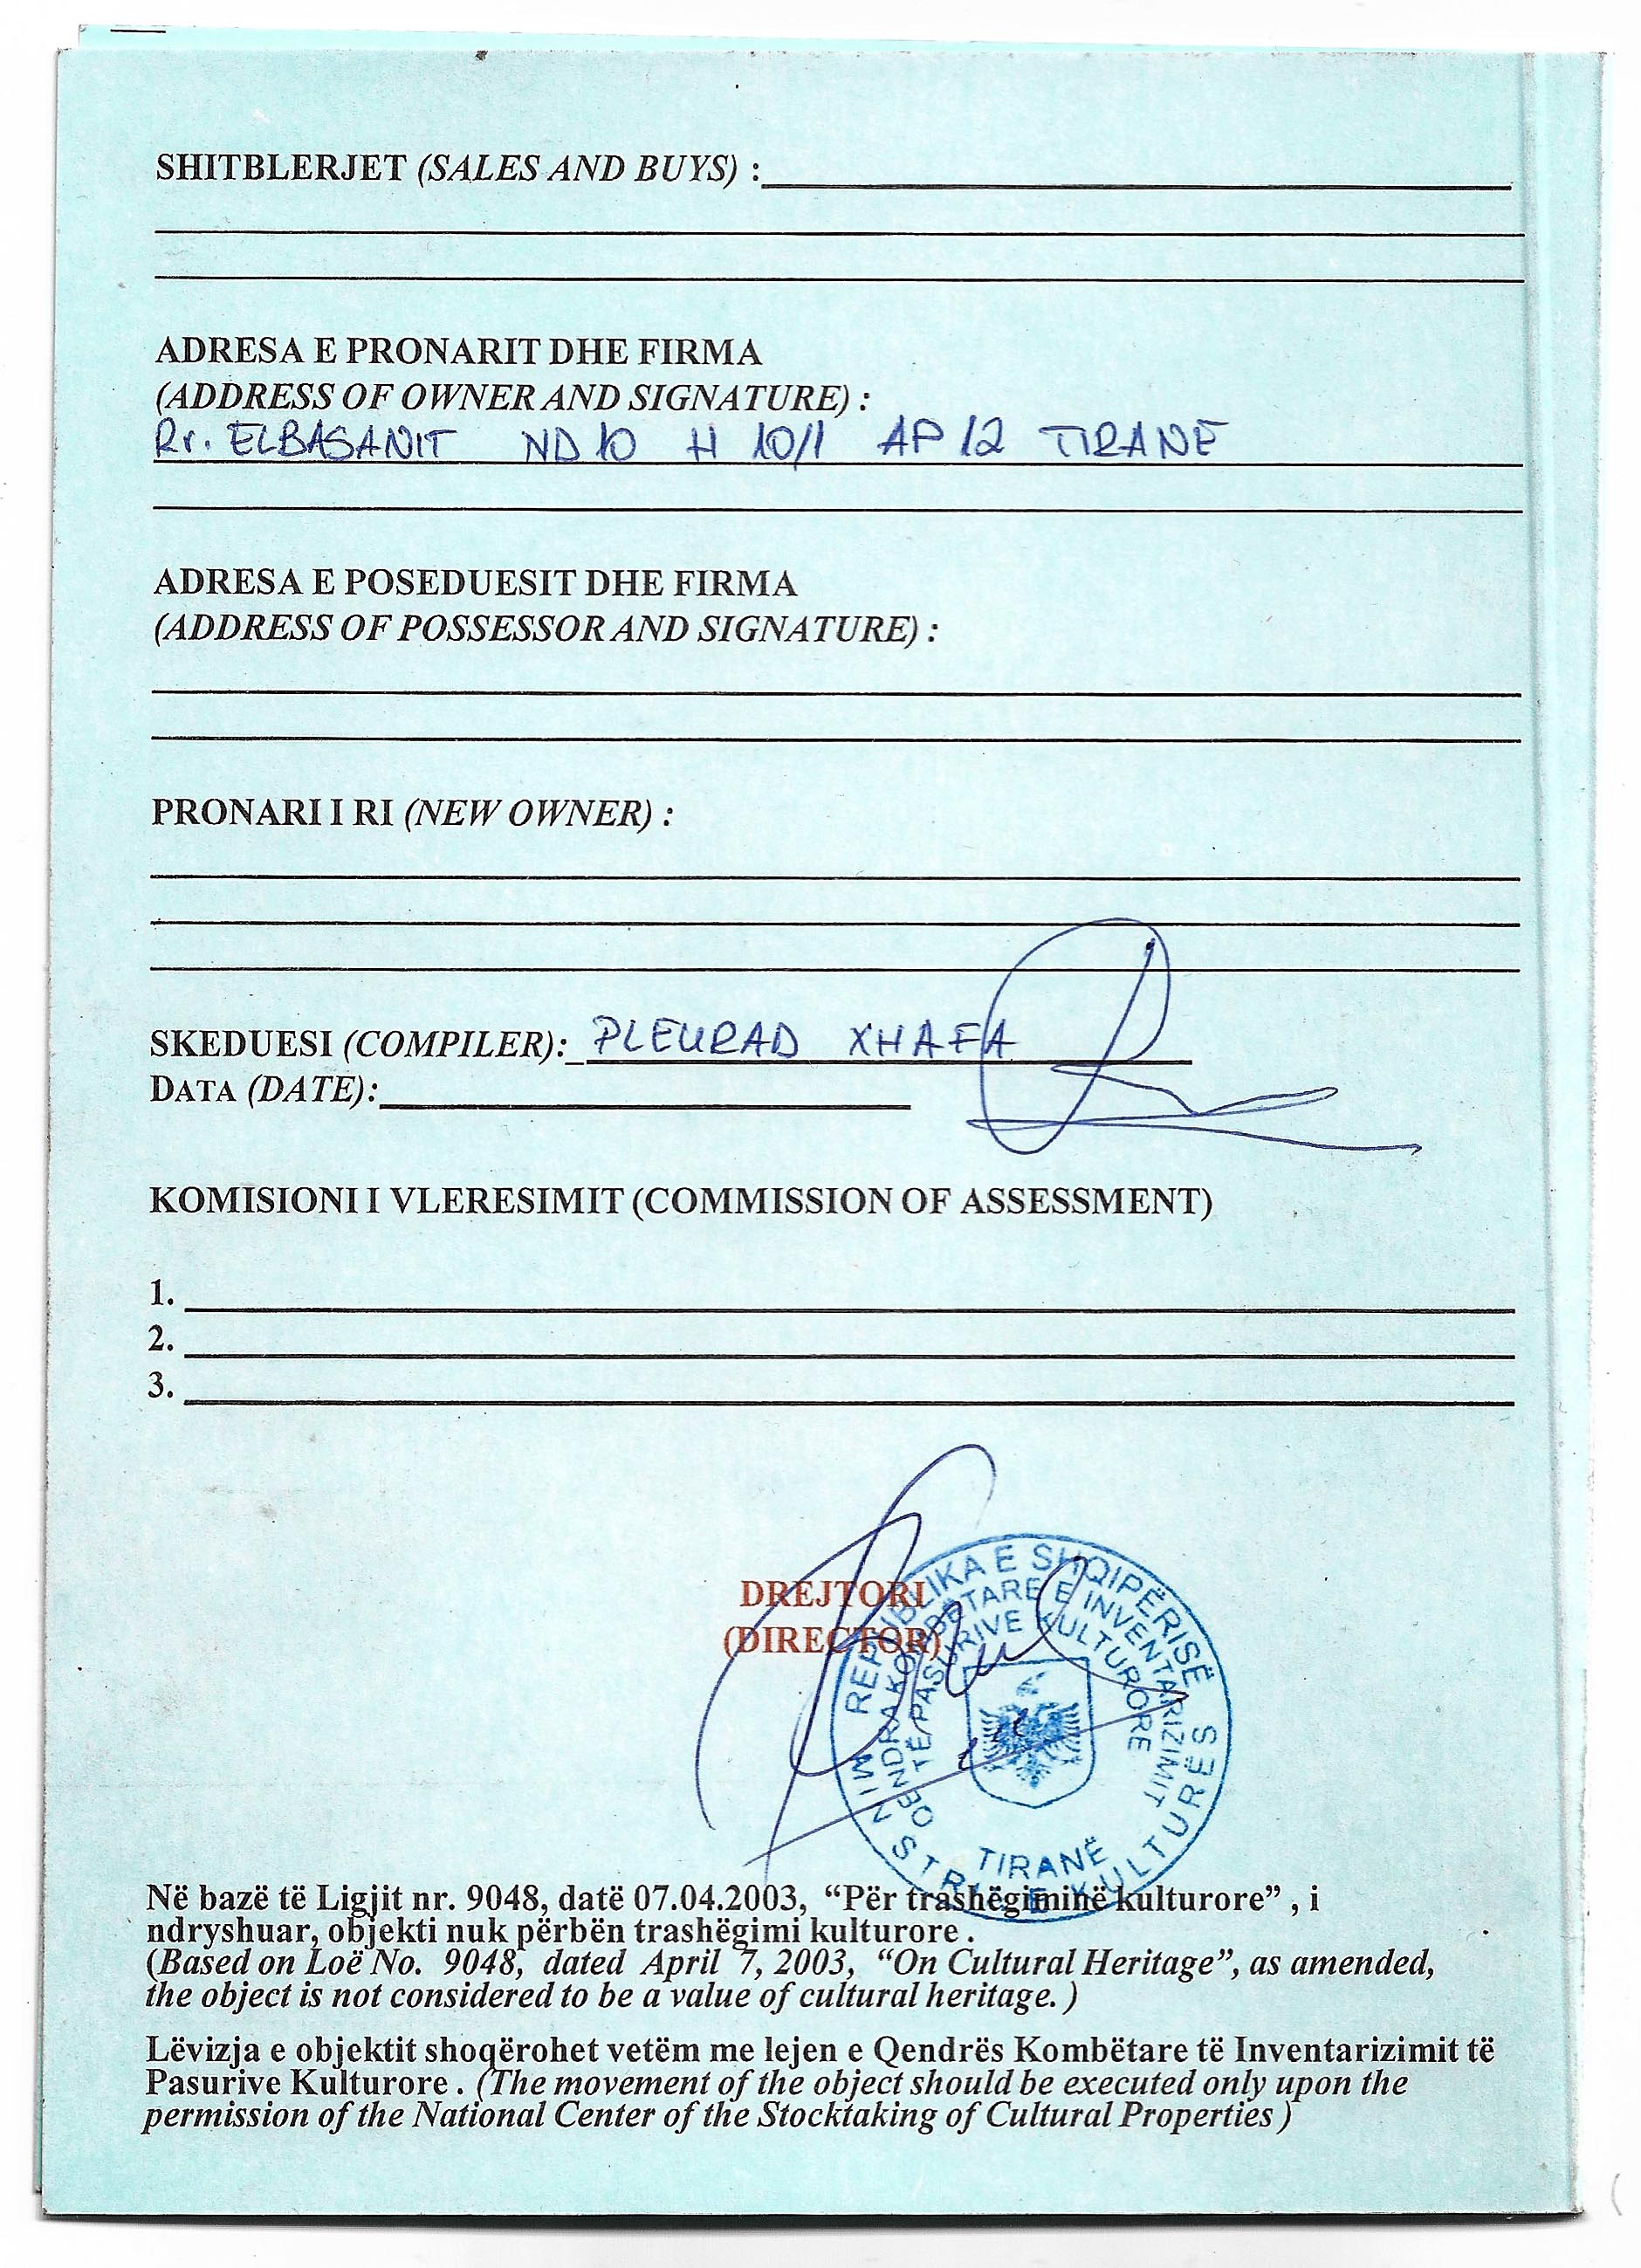 SHITBLERJET (SALES AND BUYS) :
ADRESA E PRONARIT DHE FIRMA
(ADDRESS OF OWNER AND SIGNATURE) :
Rr. ELBASANIT ND 10 H 10/1 AP 12 TIRANE
ADRESA E POSEDUESIT DHE FIRMA
(ADDRESS OF POSSESSOR AND SIGNATURE) :
PRONARI I RI (NEW OWNER) :
SKEDUESI (COMPILER): PLEURAD XHAFA
DATA (DATE):
KOMISIONI I VLERESIMIT (COMMISSION OF ASSESSMENT)
1.
2.
3.
DREJTORI
(DIRECTOR)
REPUBLIKA E SHQIPËRISË
QENDRA KOMBËTARE E INVENTARIZIMIT
TË PASURIVE KULTURORE
TIRANË
MINISTRIA E KULTURËS
Në bazë të Ligjit nr. 9048, datë 07.04.2003, “Për trashëgiminë kulturore” , i
ndryshuar, objekti nuk përbën trashëgimi kulturore .
(Based on Loë No. 9048, dated April 7, 2003, “On Cultural Heritage”, as amended,
the object is not considered to be a value of cultural heritage. )
Lëvizja e objektit shoqërohet vetëm me lejen e Qendrës Kombëtare të Inventarizimit të
Pasurive Kulturore . (The movement of the object should be executed only upon the
permission of the National Center of the Stocktaking of Cultural Properties )